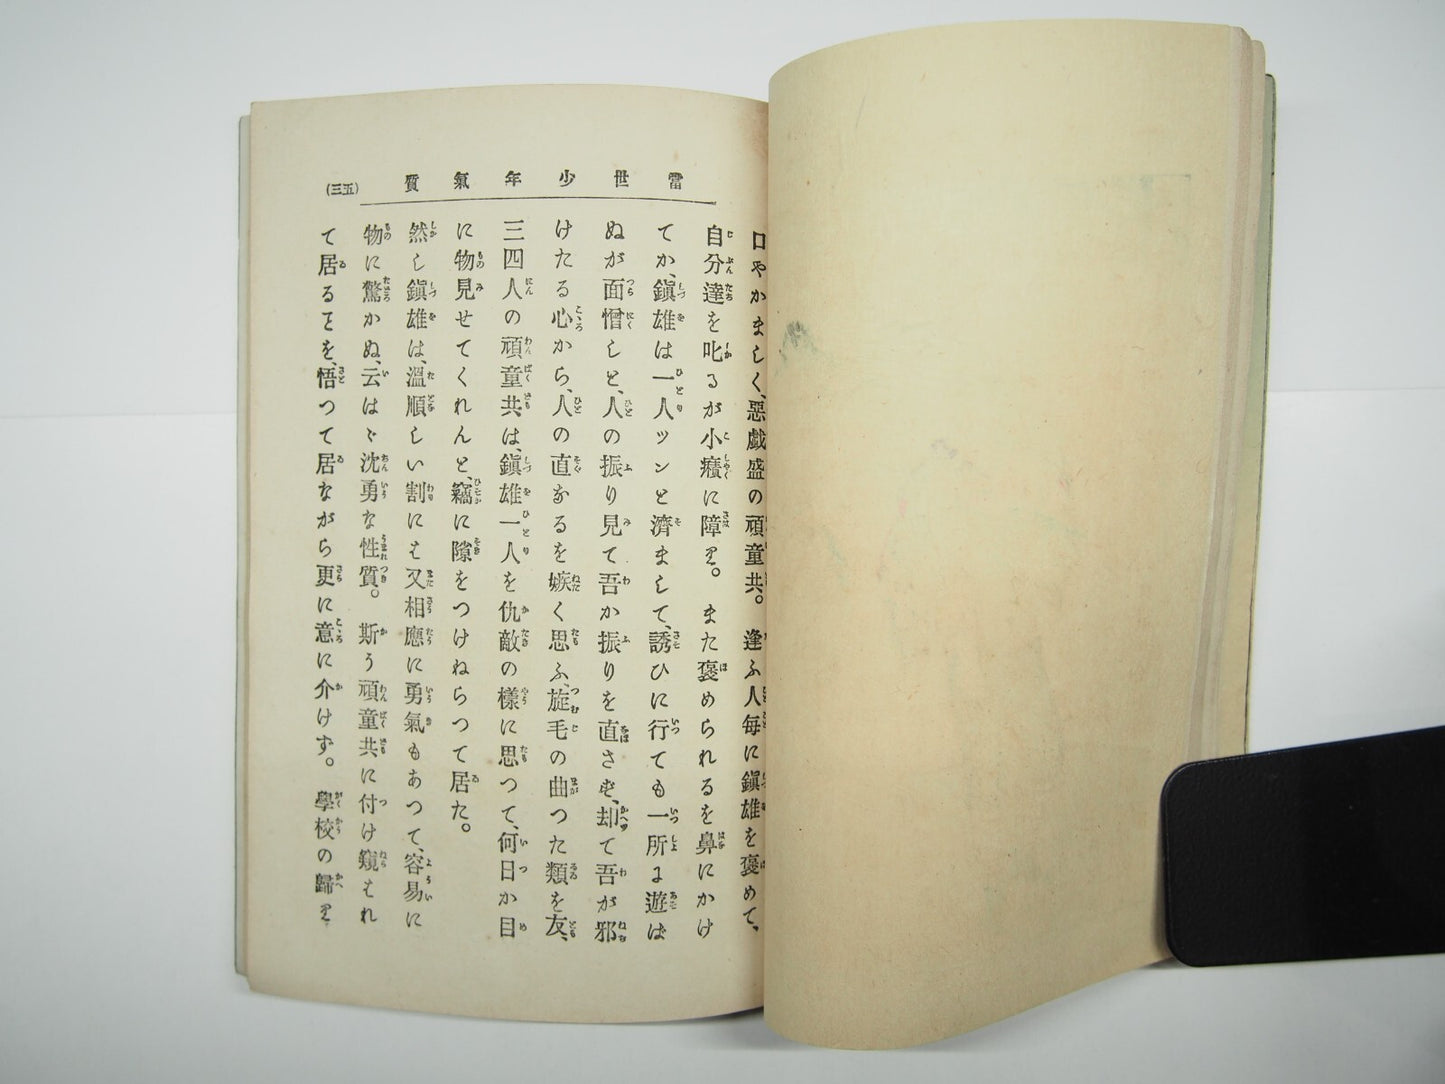 當世少年氣質
(三五)
口やかましく、惡戯盛の頑童共。逢ふ人毎に鎭雄を褒めて、
自分達を叱るが小癪に障り。また褒められるを鼻にかけ
てか、鎭雄は一人ツンと濟まして、誘ひに行ても一所に遊ば
ぬが面憎しと、人の振り見て吾か振りを直さず、却て吾が邪
けたる心から、人の直なるを嫉く思ふ、旋毛の曲つた類を友、
三四人の頑童共は、鎭雄一人を仇敵の樣に思つて、何日か目
に物見せてくれんと、竊に隙をつけねらつて居た。
然し鎭雄は、溫順しい割にも又相應に勇氣もあつて、容易に
物に驚かぬ、云はゞ沈勇な性質。斯う頑童共に付け窺はれ
て居るとを、悟つて居ながら更に意に介けず。學校の歸り